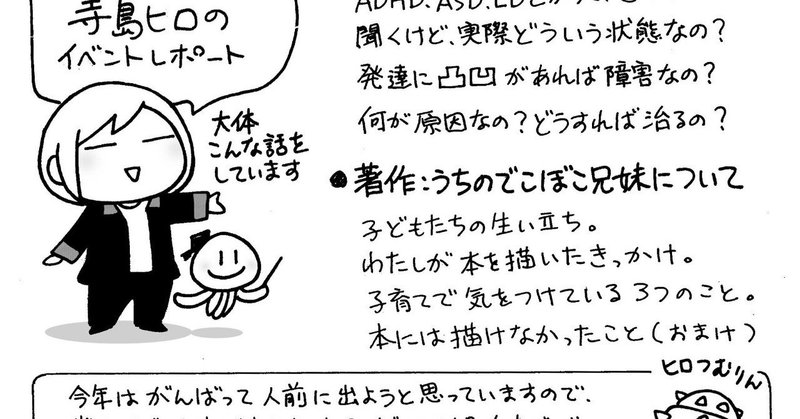 寺島ヒロの
イベントレポート
大体
こんな話を
しています
ADHD、ASD、LD
聞くけど、実際どういう状態なの?
発達に凸凹があれば障害なの?
何が原因なの?どうすれば治るの?
●著作:うちのでこぼこ兄妹について
子どもたちの生い立ち。
わたしが本を描いたきっかけ。
子育てで気をつけている3つのこと。
本には描けなかったこと(おまけ)
ヒロつむりん
今年はがんばって人前に出ようと思っていますので、